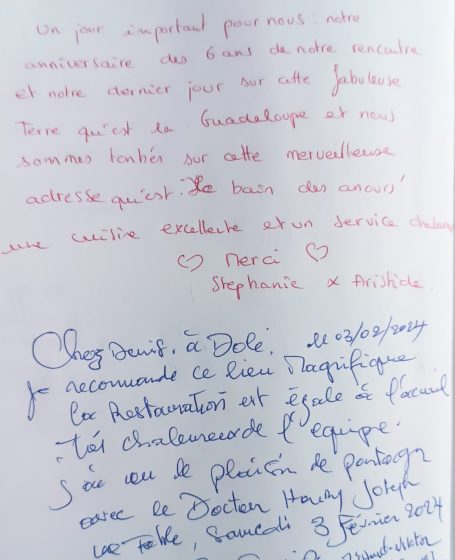 Un jour important pour nous : notre
anniversaire des 6 ans de notre rencontre
et notre dernier jour sur cette fabuleuse
Terre qu'est la Guadeloupe et nous
sommes tombés sur cette merveilleuse
adresse qu'est "Le bain des amours"
une cuisine excellente et un service
♡ Merci ♡
Stephanie & Aristide.
Chez Denis, à Dolé. le 03/02/2024
Je recommande ce lieu Magnifique
la Restauration est égale à l'accueil
très chaleureux de l'équipe.
J'ai eu le plaisir de partager
avec le Docteur Henry Joseph
une Table, Samedi 3 Février 2024